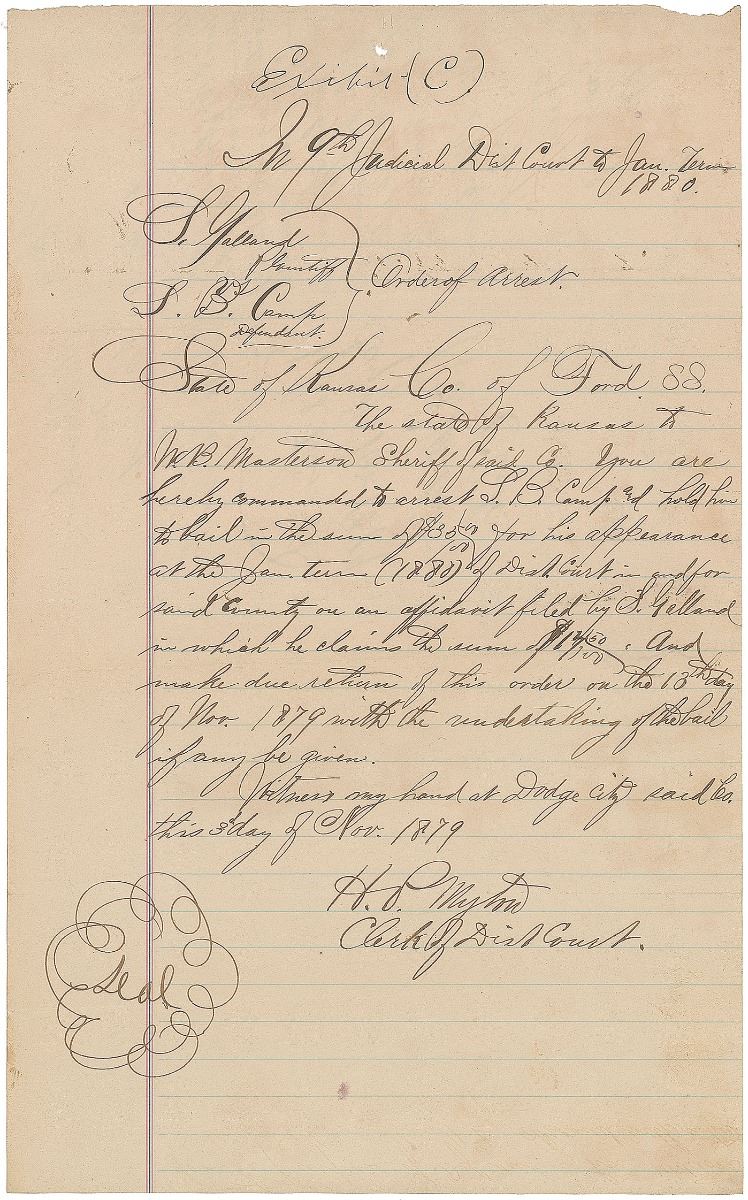 Exibit (C)
In 9th Judicial Dist Court to Jan. Term
1880.
S. Galland
Plaintiff
vs
S. B. Camp
Defendant.
Order of Arrest.
State of Kansas Co. of Ford SS.
The state of Kansas to
W.B. Masterson Sheriff of said Co. You are
hereby commanded to arrest S. B. Camp and hold him
to bail in the sum of $35 00/100 for his appearance
at the Jan. term (1880) of Dist. Court in and for
said County on an affidavit filed by S. Galland
in which he claims the sum of 50/100. And
make due return of this order on the 13th day
of Nov. 1879 with the undertaking of the bail
if any be given.
Witness my hand at Dodge City said Co.
this 3d day of Nov. 1879
H. P. Myton
Clerk of Dist Court.
Seal